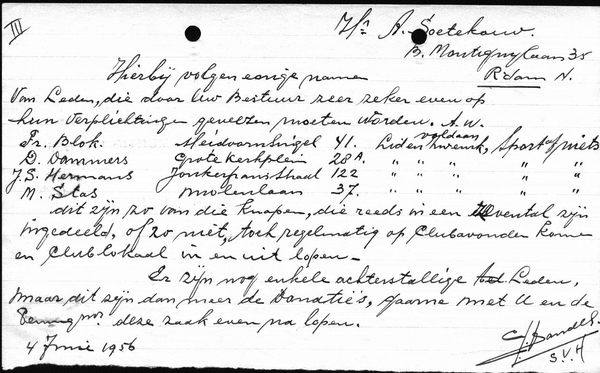 III
Hr A. Soetekouw.
B. Montignylaan 35
Rdam N.
Hierbij volgen eenige name
van Leden, die door Uw Bestuur zeer zeker even op
hun verplichtingen gewezen moeten worden. A.W.
Fr. Blok. Meidoornsingel 41. Leden
voldaan
Sport of niets
D. Dammers Grote Kerkplein 28A. " " " " "
J.S. Hermans Jonker Fransstraat 122 " " " " "
M. Stas Molenlaan 37. " " " " "
dit zijn zo van die knapen, die reeds in een tal zijn
ingedeeld, of zo niet, toch regelmatig op Clubavonden kome
en Clublokaal in en uit lopen.
Er zijn nog enkele achterstallige Leden,
maar dit zijn dan meer de Donatie's, gaarne met U en de
Penningmr. deze zaak even na lopen.
4 Junie 1956
S.V.H